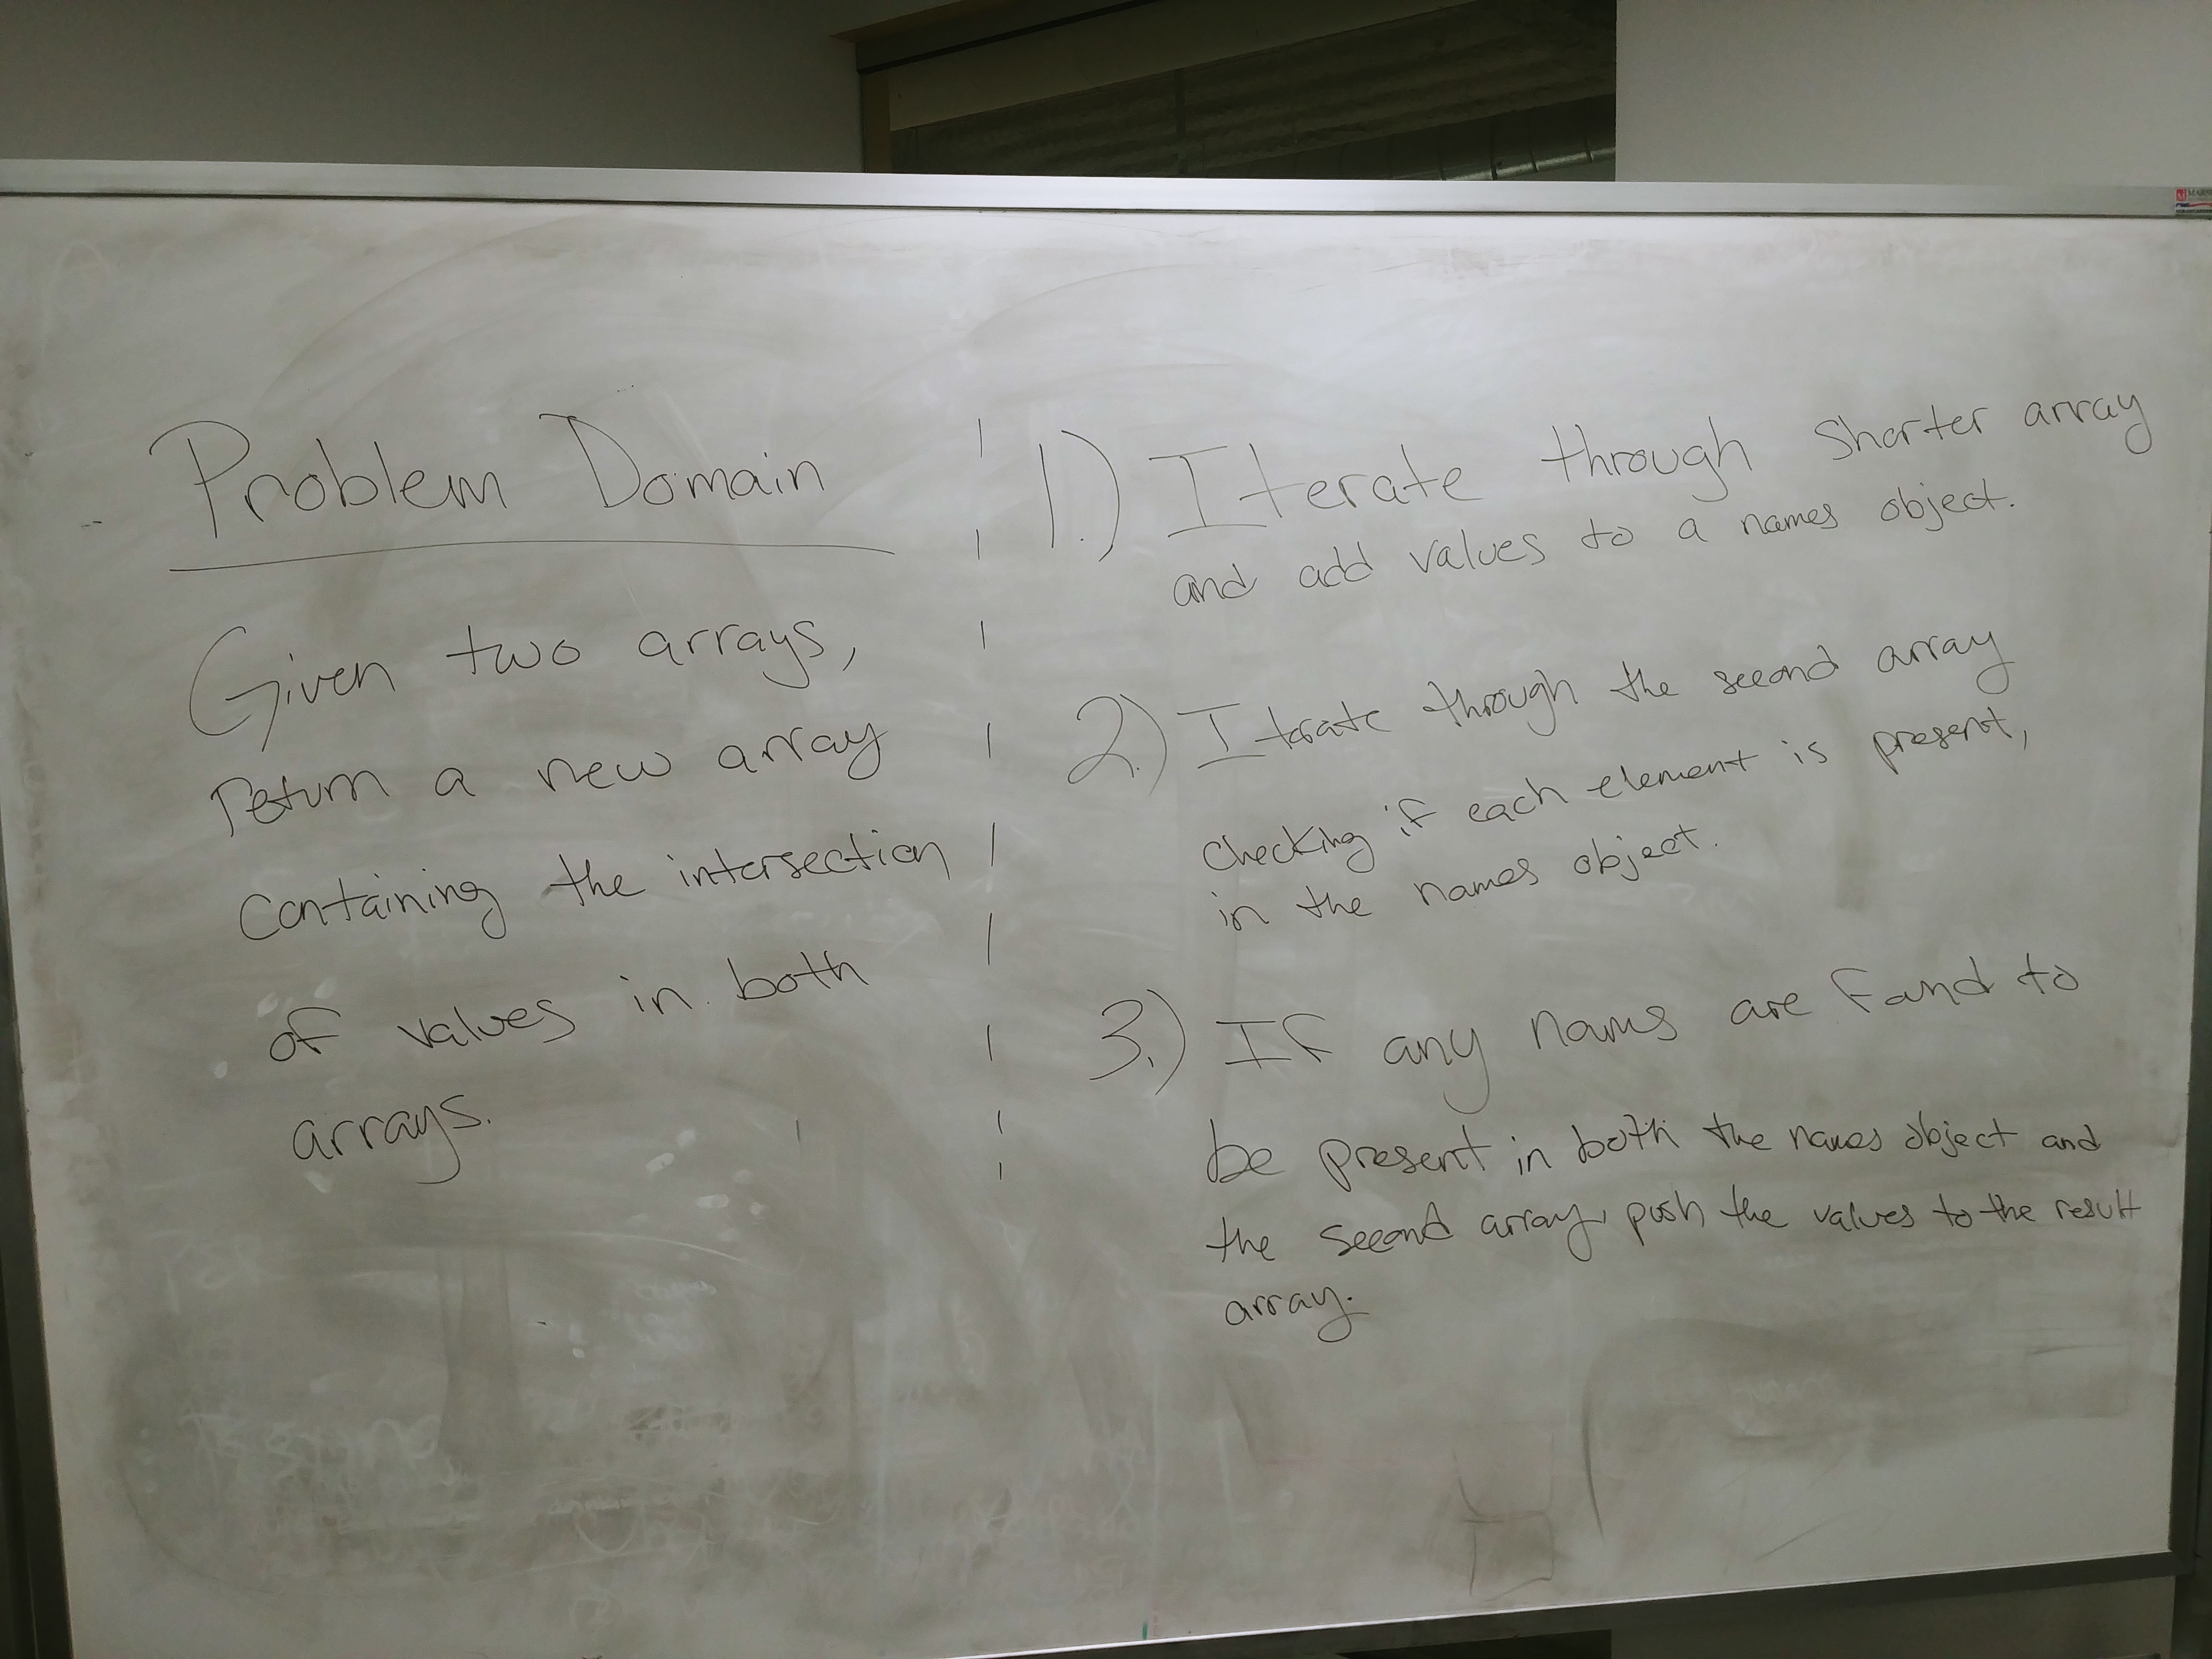 Problem Domain
Given two arrays,
return a new array
containing the intersection
of values in both
arrays.
1.) Iterate through shorter array
and add values to a names object.
2.) Iterate through the second array
checking if each element is present,
in the names object.
3.) If any names are found to
be present in both the names object and
the second array, push the values to the result
array.